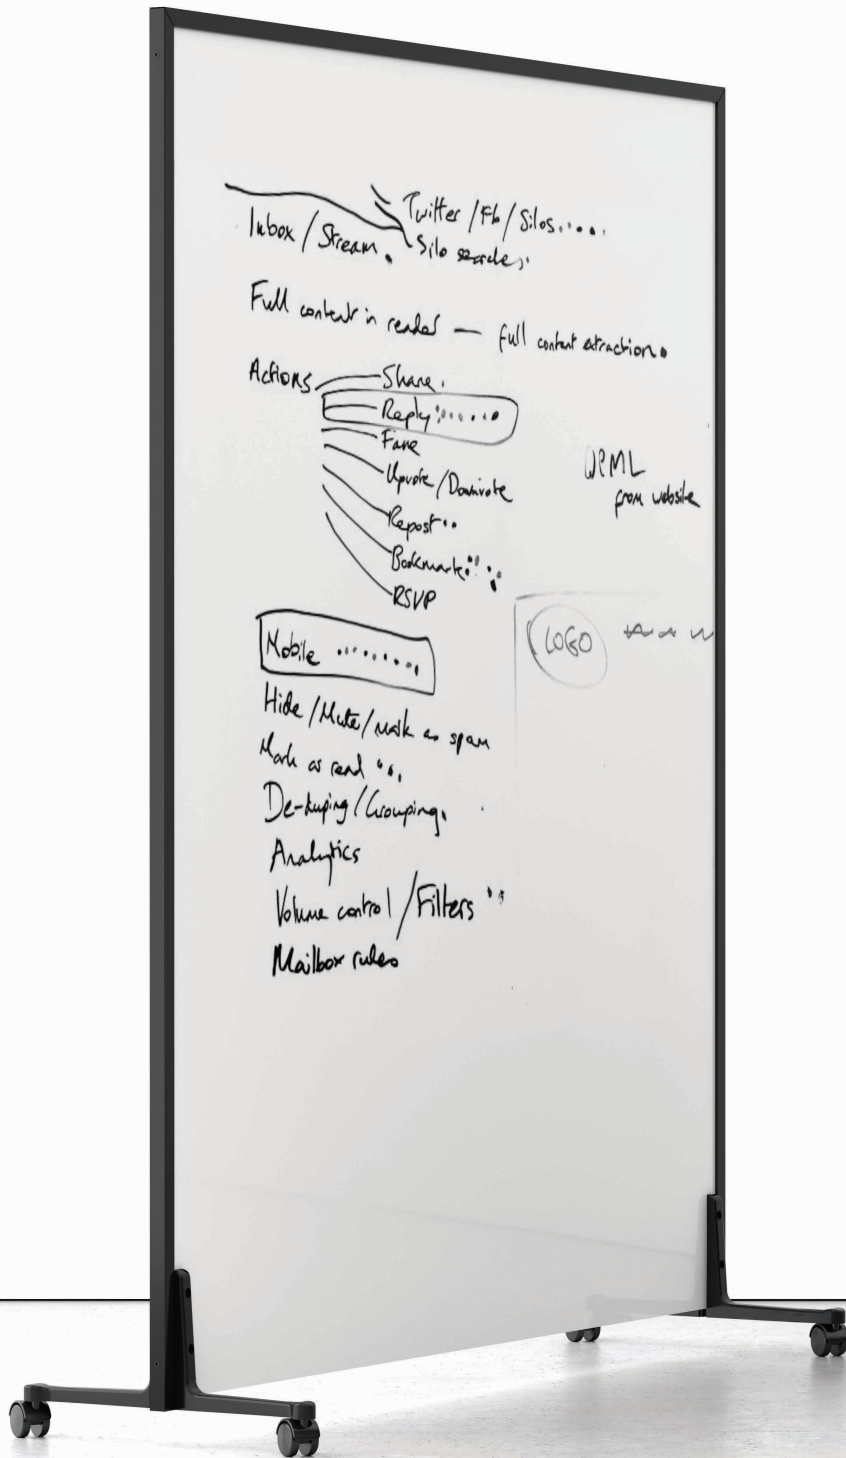 Twitter / Fb / Silos.....
Inbox / Stream. Silo searches.
Full content in reader — full content extraction.
Actions
Share.
Reply.......
Fave
Upvote / Downvote
Repost..
Bookmark.....
RSVP
OPML
from website
LOGO
Mobile .........
Hide / Mute / mark as spam
Mark as read ...
De-duping / Grouping.
Analytics
Volume control / Filters ..
Mailbox rules